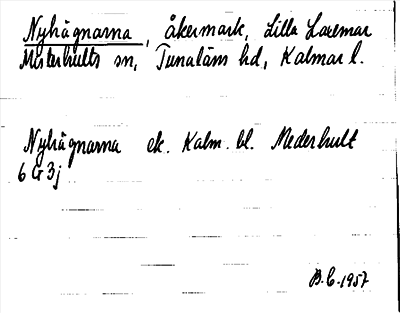 Nyhägnarna, åkermark, Lilla Laxemar
Misterhults sn, Tunaläns hd, Kalmar l.
Nyhägnarna ek. Kalm. bl. Mederhult
6 G 3j
B.C. 1957